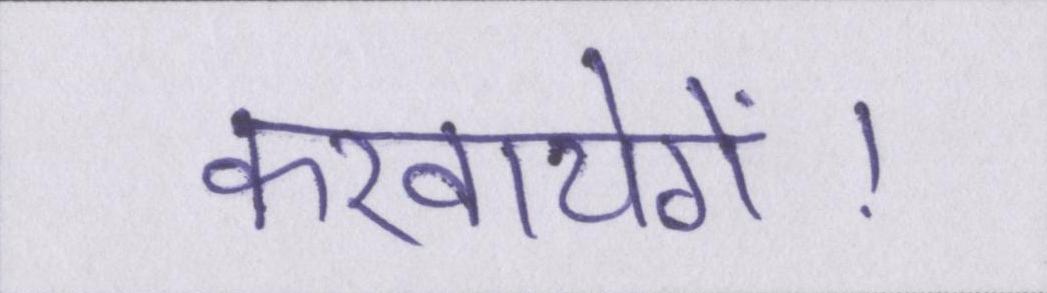 करवायेगें !